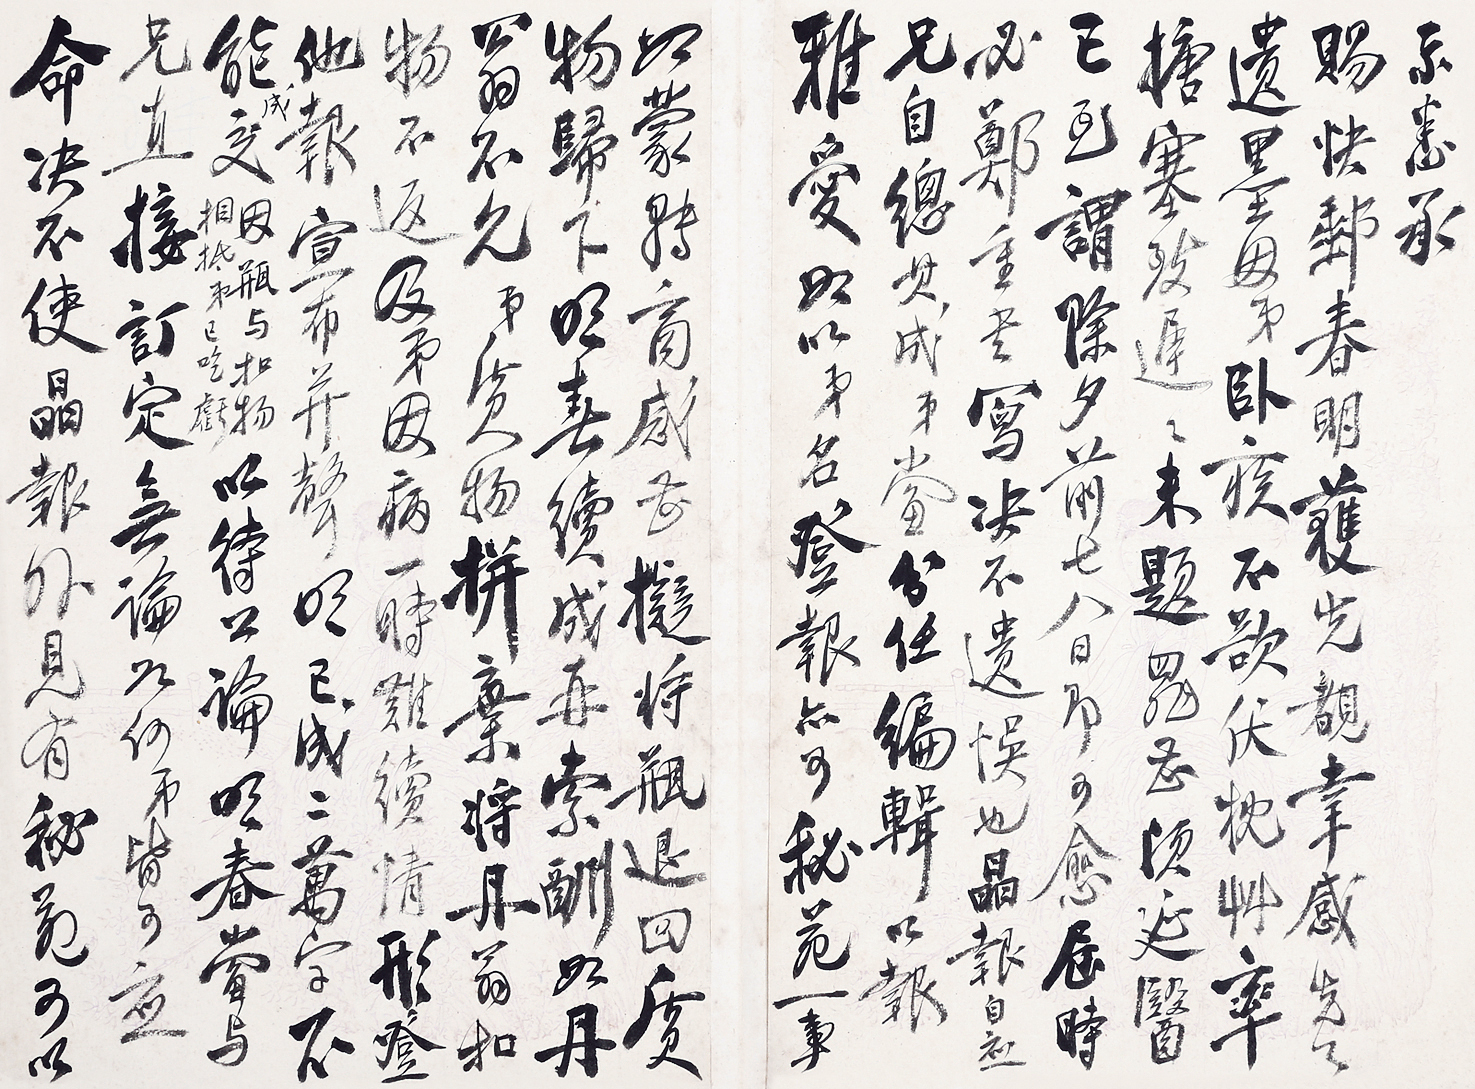 示悉承
賜快郵春明獲先覩幸感先之
遺墨因弟臥疾不欲伏枕艸率
搪塞致遲之未題罪甚須延醫
已到謂除夕前七八日即可愈屆時
必鄭重書寫決不遺悞也晶報自應
兄自總其成弟當分任編輯以報
雅愛如以弟名登報亦可秘苑一事
如蒙轉商感甚擬將瓶退回質
物歸下明春續成再索酬如丹
翁不允弟質物拼棄將丹翁扣
物不返及弟因病一時難續情形登
他報宣布并聲明已成二萬字不
能成交因瓶与扣物相抵弟已吃虧以待公論明春當与
兄直接訂定無論如何弟皆可應
命決不使晶報外見有秘苑可以